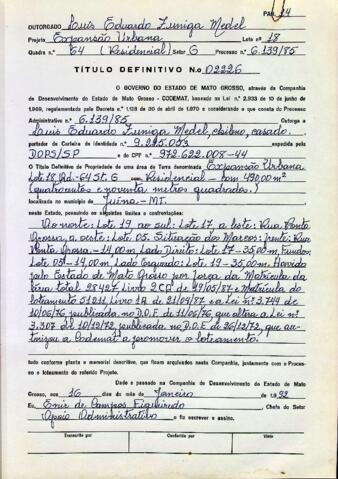 PAG 24
OUTORGADO Luis Eduardo Zuniga Medel
Projeto Expansão Urbana Lote n.º 18
Quadra n.º 64 (Residencial) Setor G Processo n.º 6.139/85
TÍTULO DEFINITIVO N.o 02226
O GOVERNO DO ESTADO DE MATO GROSSO, através da Companhia
de Desenvolvimento do Estado de Mato Grosso - CODEMAT, baseado na Lei n.º 2.933 de 10 de junho de
1.969, regulamentado pelo Decreto n.º 1.128 de 30 de abril de 1.970 e considerando o que consta do Processo
Administrativo n.º 6.139/85 Outorga a
Luis Eduardo Zuniga Medel, chileno, casado.
portador da Carteira de Identidade n.º 9.215.053 expedida pela
DOPS/SP e do CPF n.º 972.622.008-44
o Título Definitivo de Propriedade de uma área de Terra denominada Expansão Urbana
Lote 18, Qd-64 St. G com Residencial - com 490,00 m²
(quatrocentos e noventa metros quadrados.)
localizada no município de Juína - MT.
neste Estado, possuindo os seguintes limites e confrontações:
Ao norte: Lote 19, ao sul: Lote 17, a leste: Rua Ponta
Grossa, a oeste: Lote 05. Situação dos Marcos: frente: Rua
Ponta Grossa - 14,00 m, Lado Direito: Lote 17 - 35,00 m, Fundos:
Lote 05 - 14,00 m, Lado Esquerdo: Lote 19 - 35,00 m. Havido
pelo Estado de Mato Grosso por força da Matrícula da
área total 28427, Livro 2CP de 19/05/87 e Matrícula do
loteamento 51211, Livro 1A de 21/09/87 e a Lei nº 3.744 de
10/06/76 publicada no D.O.E de 11/06/76 que altera a Lei nº
3.307 de 10/12/72, publicada no D.O.E de 26/12/72, que au-
torizou a Codemat a promover o loteamento.
tudo conforme planta e memorial descritivo, que ficam arquivados nesta Companhia, juntamente com o Proces-
so e loteamento do referido Projeto.
Dado e passado na Companhia de Desenvolvimento do Estado de Mato
Grosso, aos 16 dias do mês de Janeiro de 1.992
Eu, Enir de Campos Figueiredo Chefe do Setor
Apoio Administrativo o fiz escrever e assino.
Transcrito por Conferido por Visto